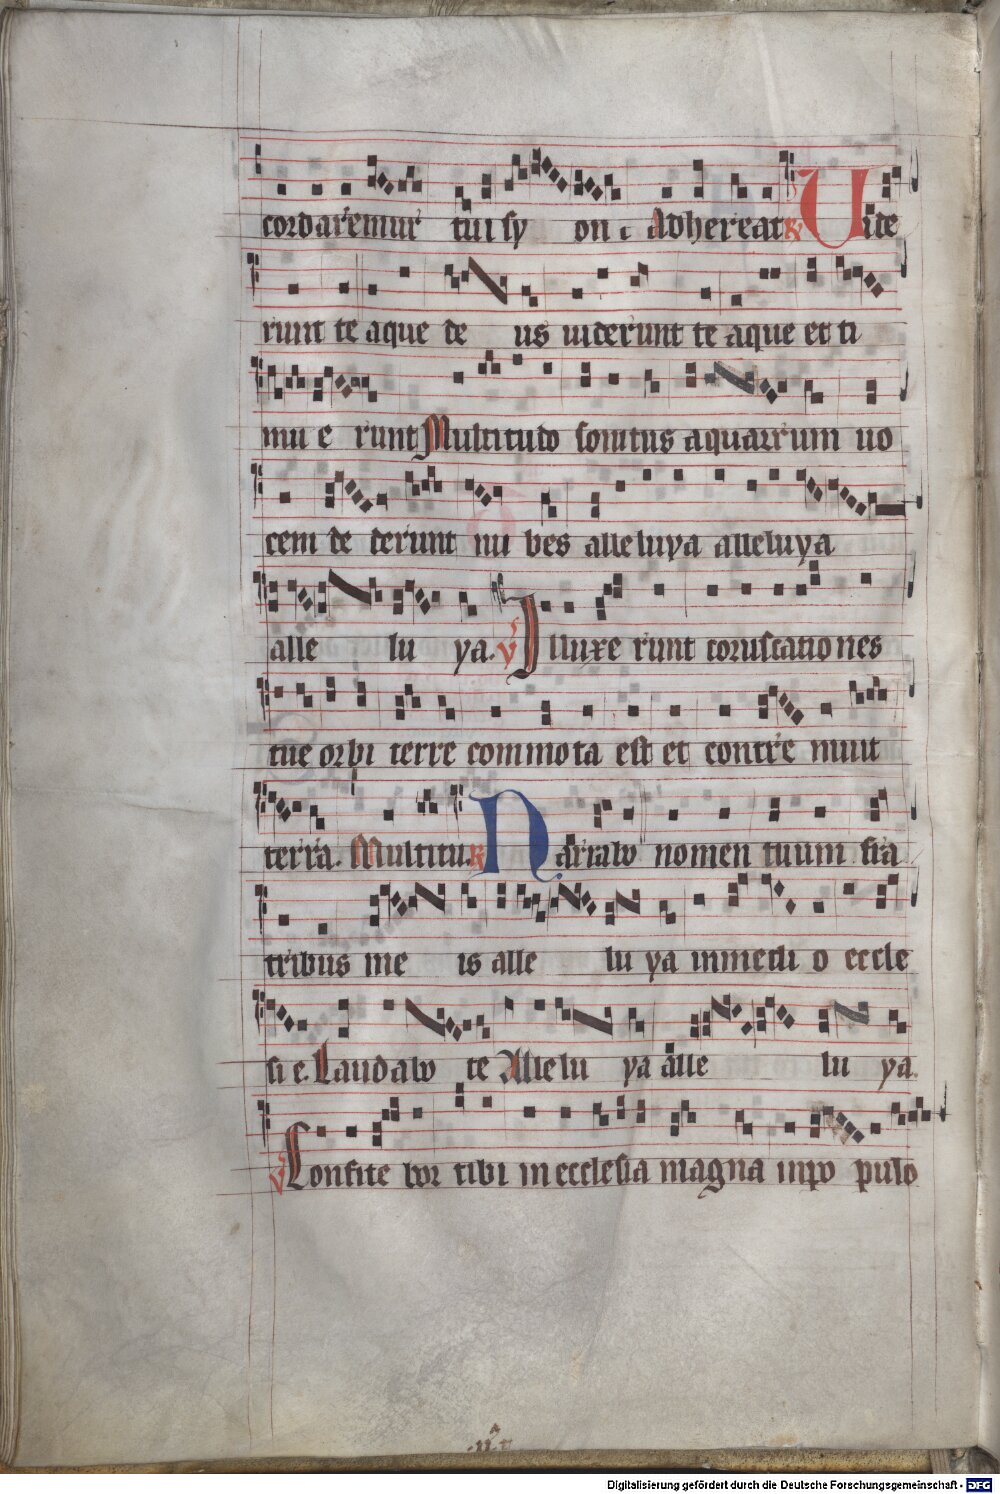 cordaremur tui sy on Adhereat R Uide
runt te aque de us uiderunt te aque et ti
mu e runt Multitudo sonitus aquarum uo
cem de derunt nu bes alleluya alleluya
alle lu ya. V Illuxe runt coruscationes
tue orbi terre commota est et contre muit
terra. Multitu. R Narrabo nomen tuum fra
tribus me is alle lu ya inmedi o eccle
si e. Laudabo te Allelu ya alle lu ya.
V Confite bor tibi in ecclesia magna inpo pulo
Digitalisierung gefördert durch die Deutsche Forschungsgemeinschaft - DFG